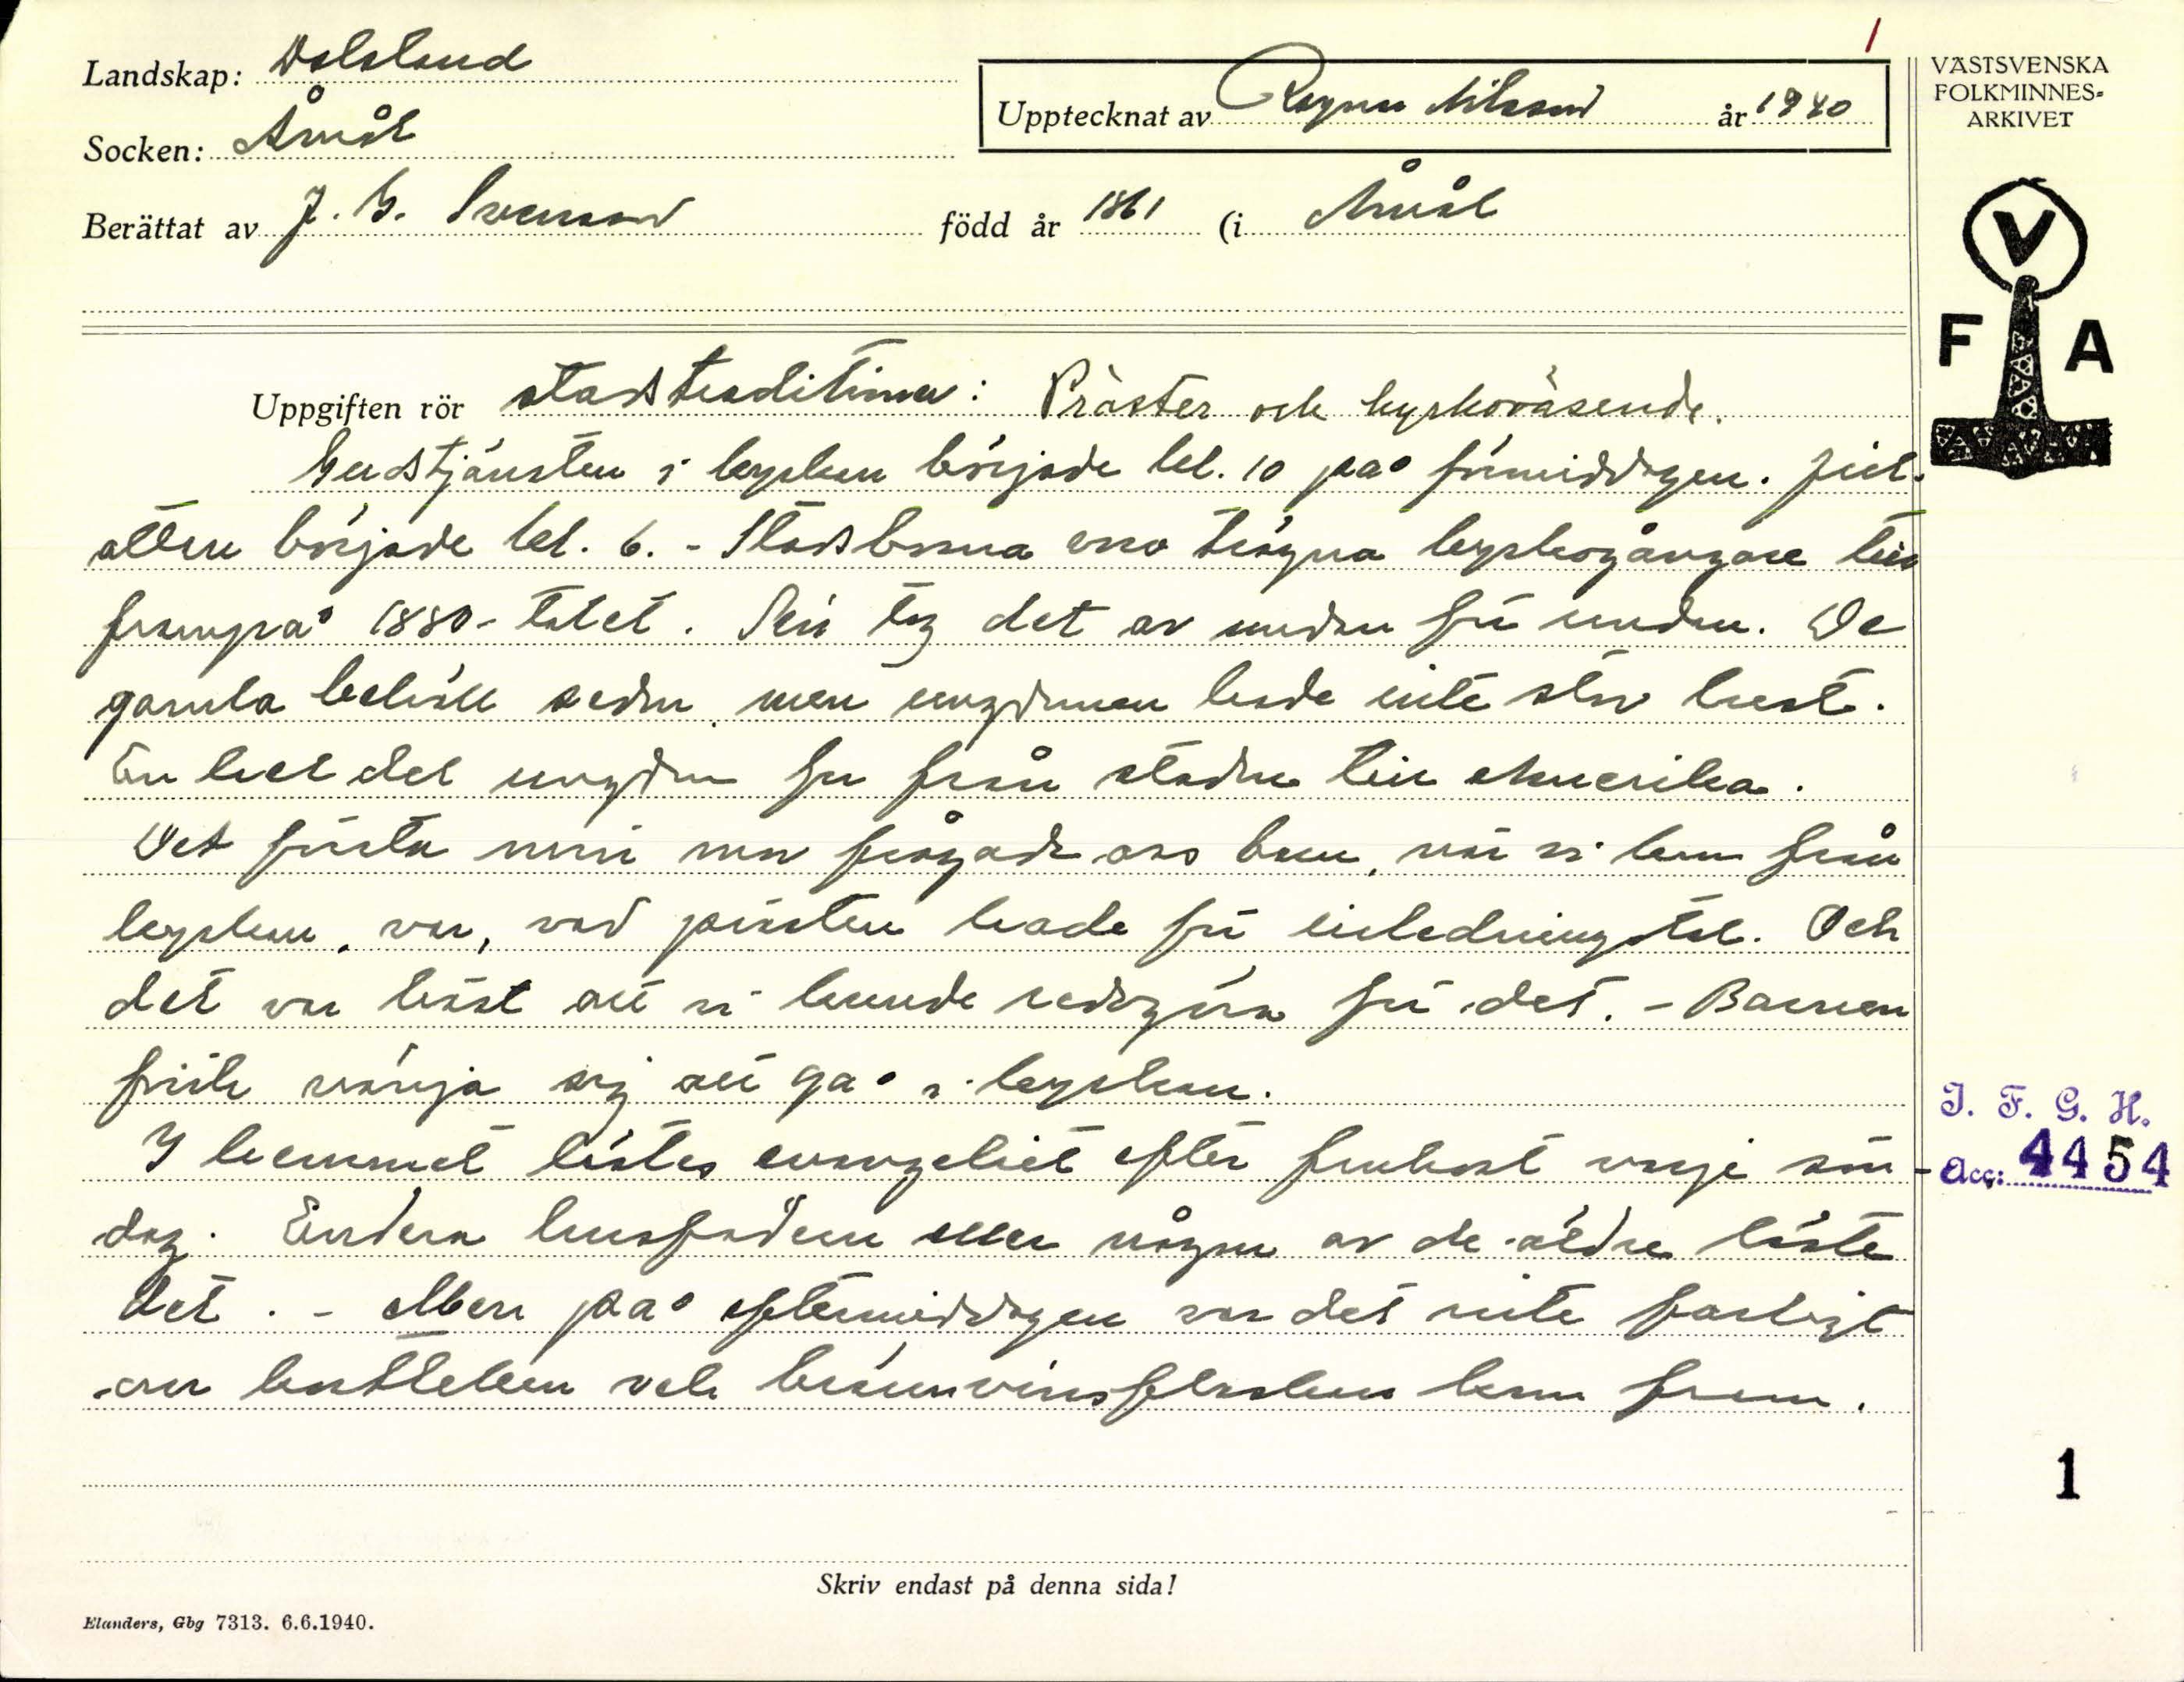 1
Landskap: Dalsland
Socken: Åmål
Berättat av J. G. Svensson född år 1861 (i Åmål
Upptecknat av Ragnar Nilsson år 1940
VÄSTSVENSKA
FOLKMINNES-
ARKIVET
V
F A
Uppgiften rör stadstraditioner: Präster och kyrkoväsende.
Gudstjänsten i kyrkan började kl. 10 på förmiddagen. Jul-
ottan började kl. 6. - Stadsborna voro trägna kyrkogångare till
frampå 1880-talet. Sen tog det av undan för undan. De
gamla behöll seden, men ungdomen hade inte stor lust.
En hel del ungdom for från staden till Amerika.
Det första mor min frågade oss barn, när vi kom från
kyrkan, var, vad prästen hade för inledningstal. Och
det var bäst att vi kunde redogöra för det. - Barnen
fick vänja sig att gå i kyrkan.
I hemmet lästes evangeliet efter frukost varje sön-
dag. Endera husfadern eller någon av de äldre läste
det. - Men på eftermiddagen var det inte farligt
om kortleken och brännvinsflaskan kom fram.
I. F. G. H.
Acc: 4454
1
Skriv endast på denna sida!
Elanders, Gbg 7313. 6.6.1940.